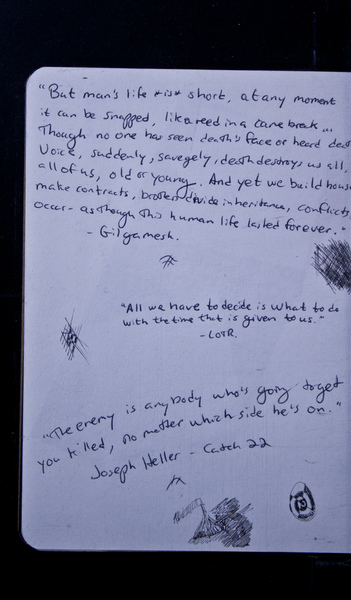 "But man's life *is* short, at any moment
it can be snapped, like a reed in a cane break...
Though no one has seen death's face or heard
Voice, suddenly, savegely, death destroys us all,
all of us, old or young. And yet we build
make contracts, brothers divide inheritance, conflicts
occur - as though this human life lasted forever."
- Gilgamesh.
"All we have to decide is what to do
with the time that is given to us."
- LOTR.
"The enemy is anybody who's going to get
you killed, no matter which side he's on."
Joseph Heller - Catch 22